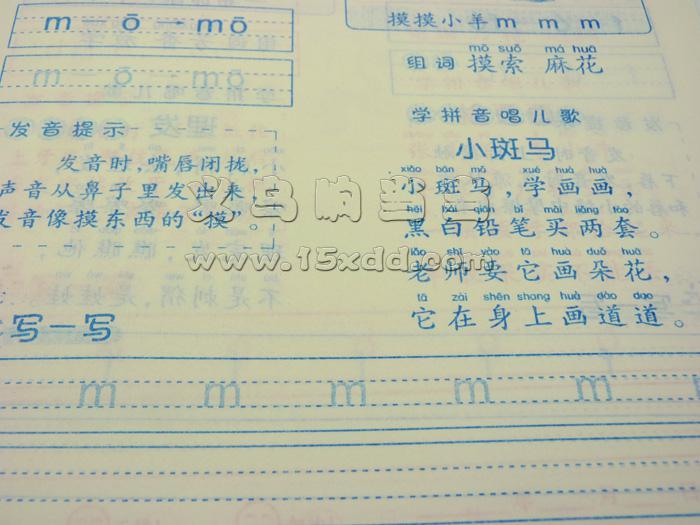 m — ō — mō
m — ō — mō
发音提示
发音时,嘴唇闭拢,
声音从鼻子里发出来,
发音像摸东西的“摸”。
写一写
摸摸小羊m m m
mō suǒ má huā
组词 摸索 麻花
学拼音唱儿歌
小斑马
xiǎo bān mǎ xué huà huà
小斑马,学画画,
hēi bái qiān bǐ mǎi liǎng tào
黑白铅笔买两套。
lǎo shī yào tā huà duǒ huā
老师要它画朵花,
tā zài shēn shang huà dào dao
它在身上画道道。
m m m m m m
义乌响当当
www.15xdd.com